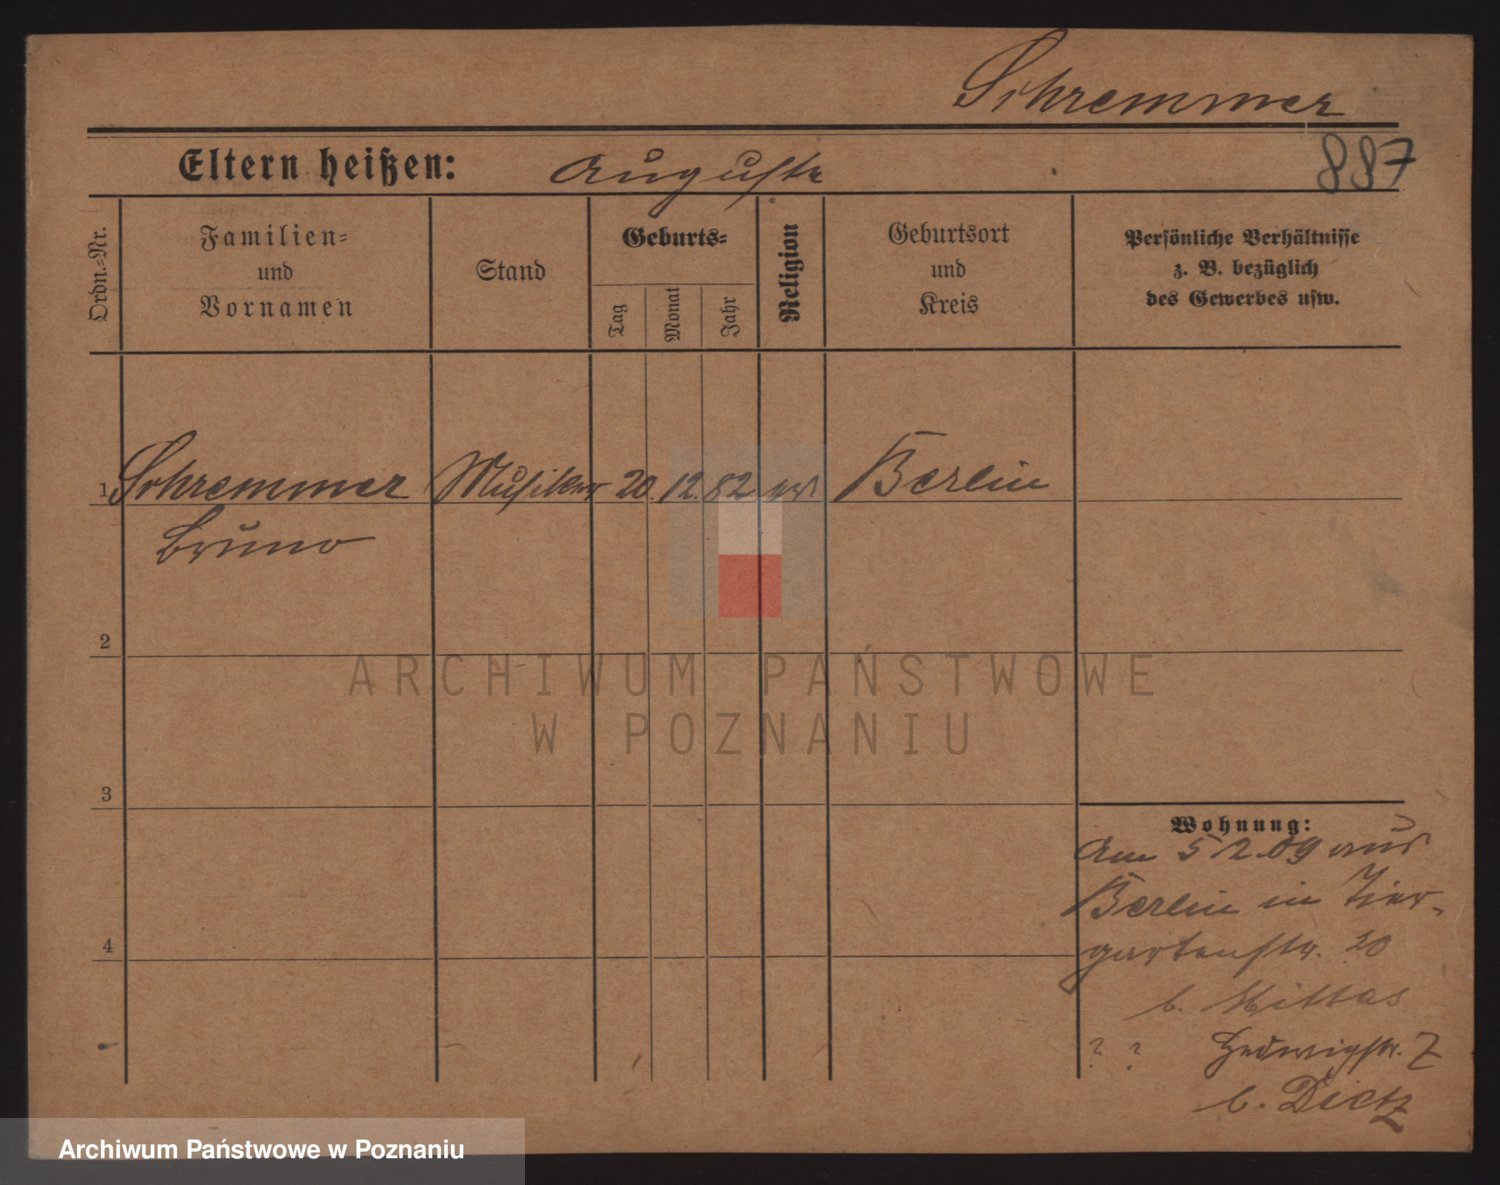 Schremmer
887
Eltern heißen: Auguste
Ordn.-Nr.
Familien-
und
Vornamen
Stand
Geburts-
Tag
Monat
Jahr
Religion
Geburtsort
und
Kreis
Persönliche Verhältnisse
z. B. bezüglich
des Gewerbes usw.
1 Schremmer Musiker 20. 12. 82 ev. Berlin
Bruno
2
3
4
Wohnung:
Am 5 2. 09 aus
Berlin in Tier-
gartenstr. 20
b. Mittas
? ? Hedwigstr. 7
b. Dietz
ARCHIWUM PAŃSTWOWE
W POZNANIU
Archiwum Państwowe w Poznaniu